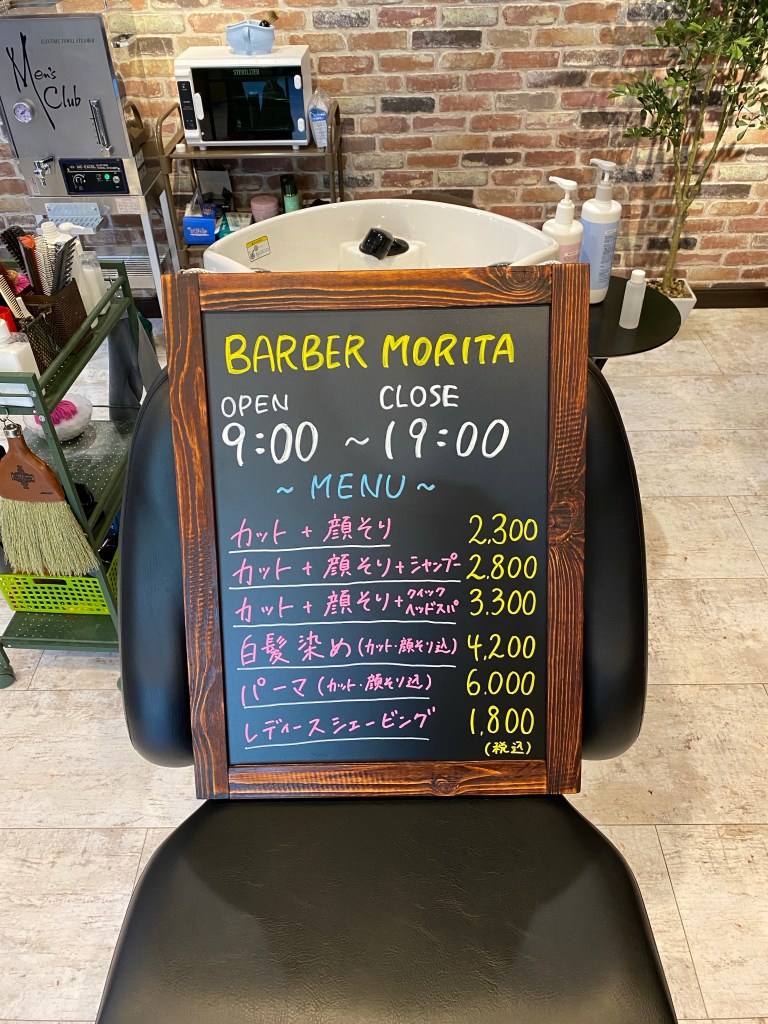 ELECTRIC TOWEL STEAMER
Men's
Club
STERILIZER
BARBER MORITA
OPEN CLOSE
9:00 ~ 19:00
~ MENU ~
カット + 顔そり 2.300
カット + 顔そり + シャンプー 2.800
カット + 顔そり + クイックヘッドスパ 3.300
白髪染め (カット・顔そり込) 4,200
パーマ (カット・顔そり込) 6.000
レディースシェービング 1,800
(税込)